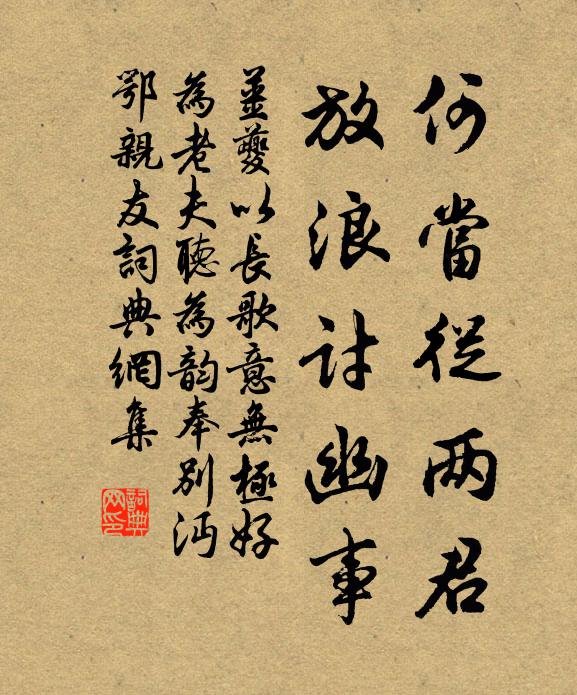 何當從两君
放浪討幽事
姜夔以長歌意無極好
為老夫聽為韵奉別沔
鄂親友詞典網集
詞典
网印